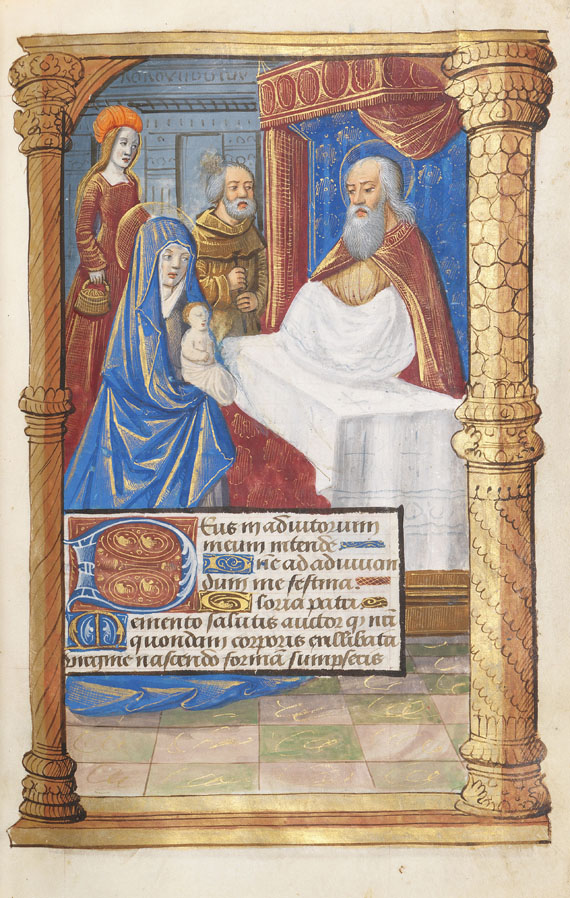 DEus in adiutorium
meum intende
Dn̄e ad adiuuan
dum me festina.
Gloria patri
Memento salutis auctor q̄ nr̄i
quondam corporis ex illibata
virgine nascendo formā sumpseris